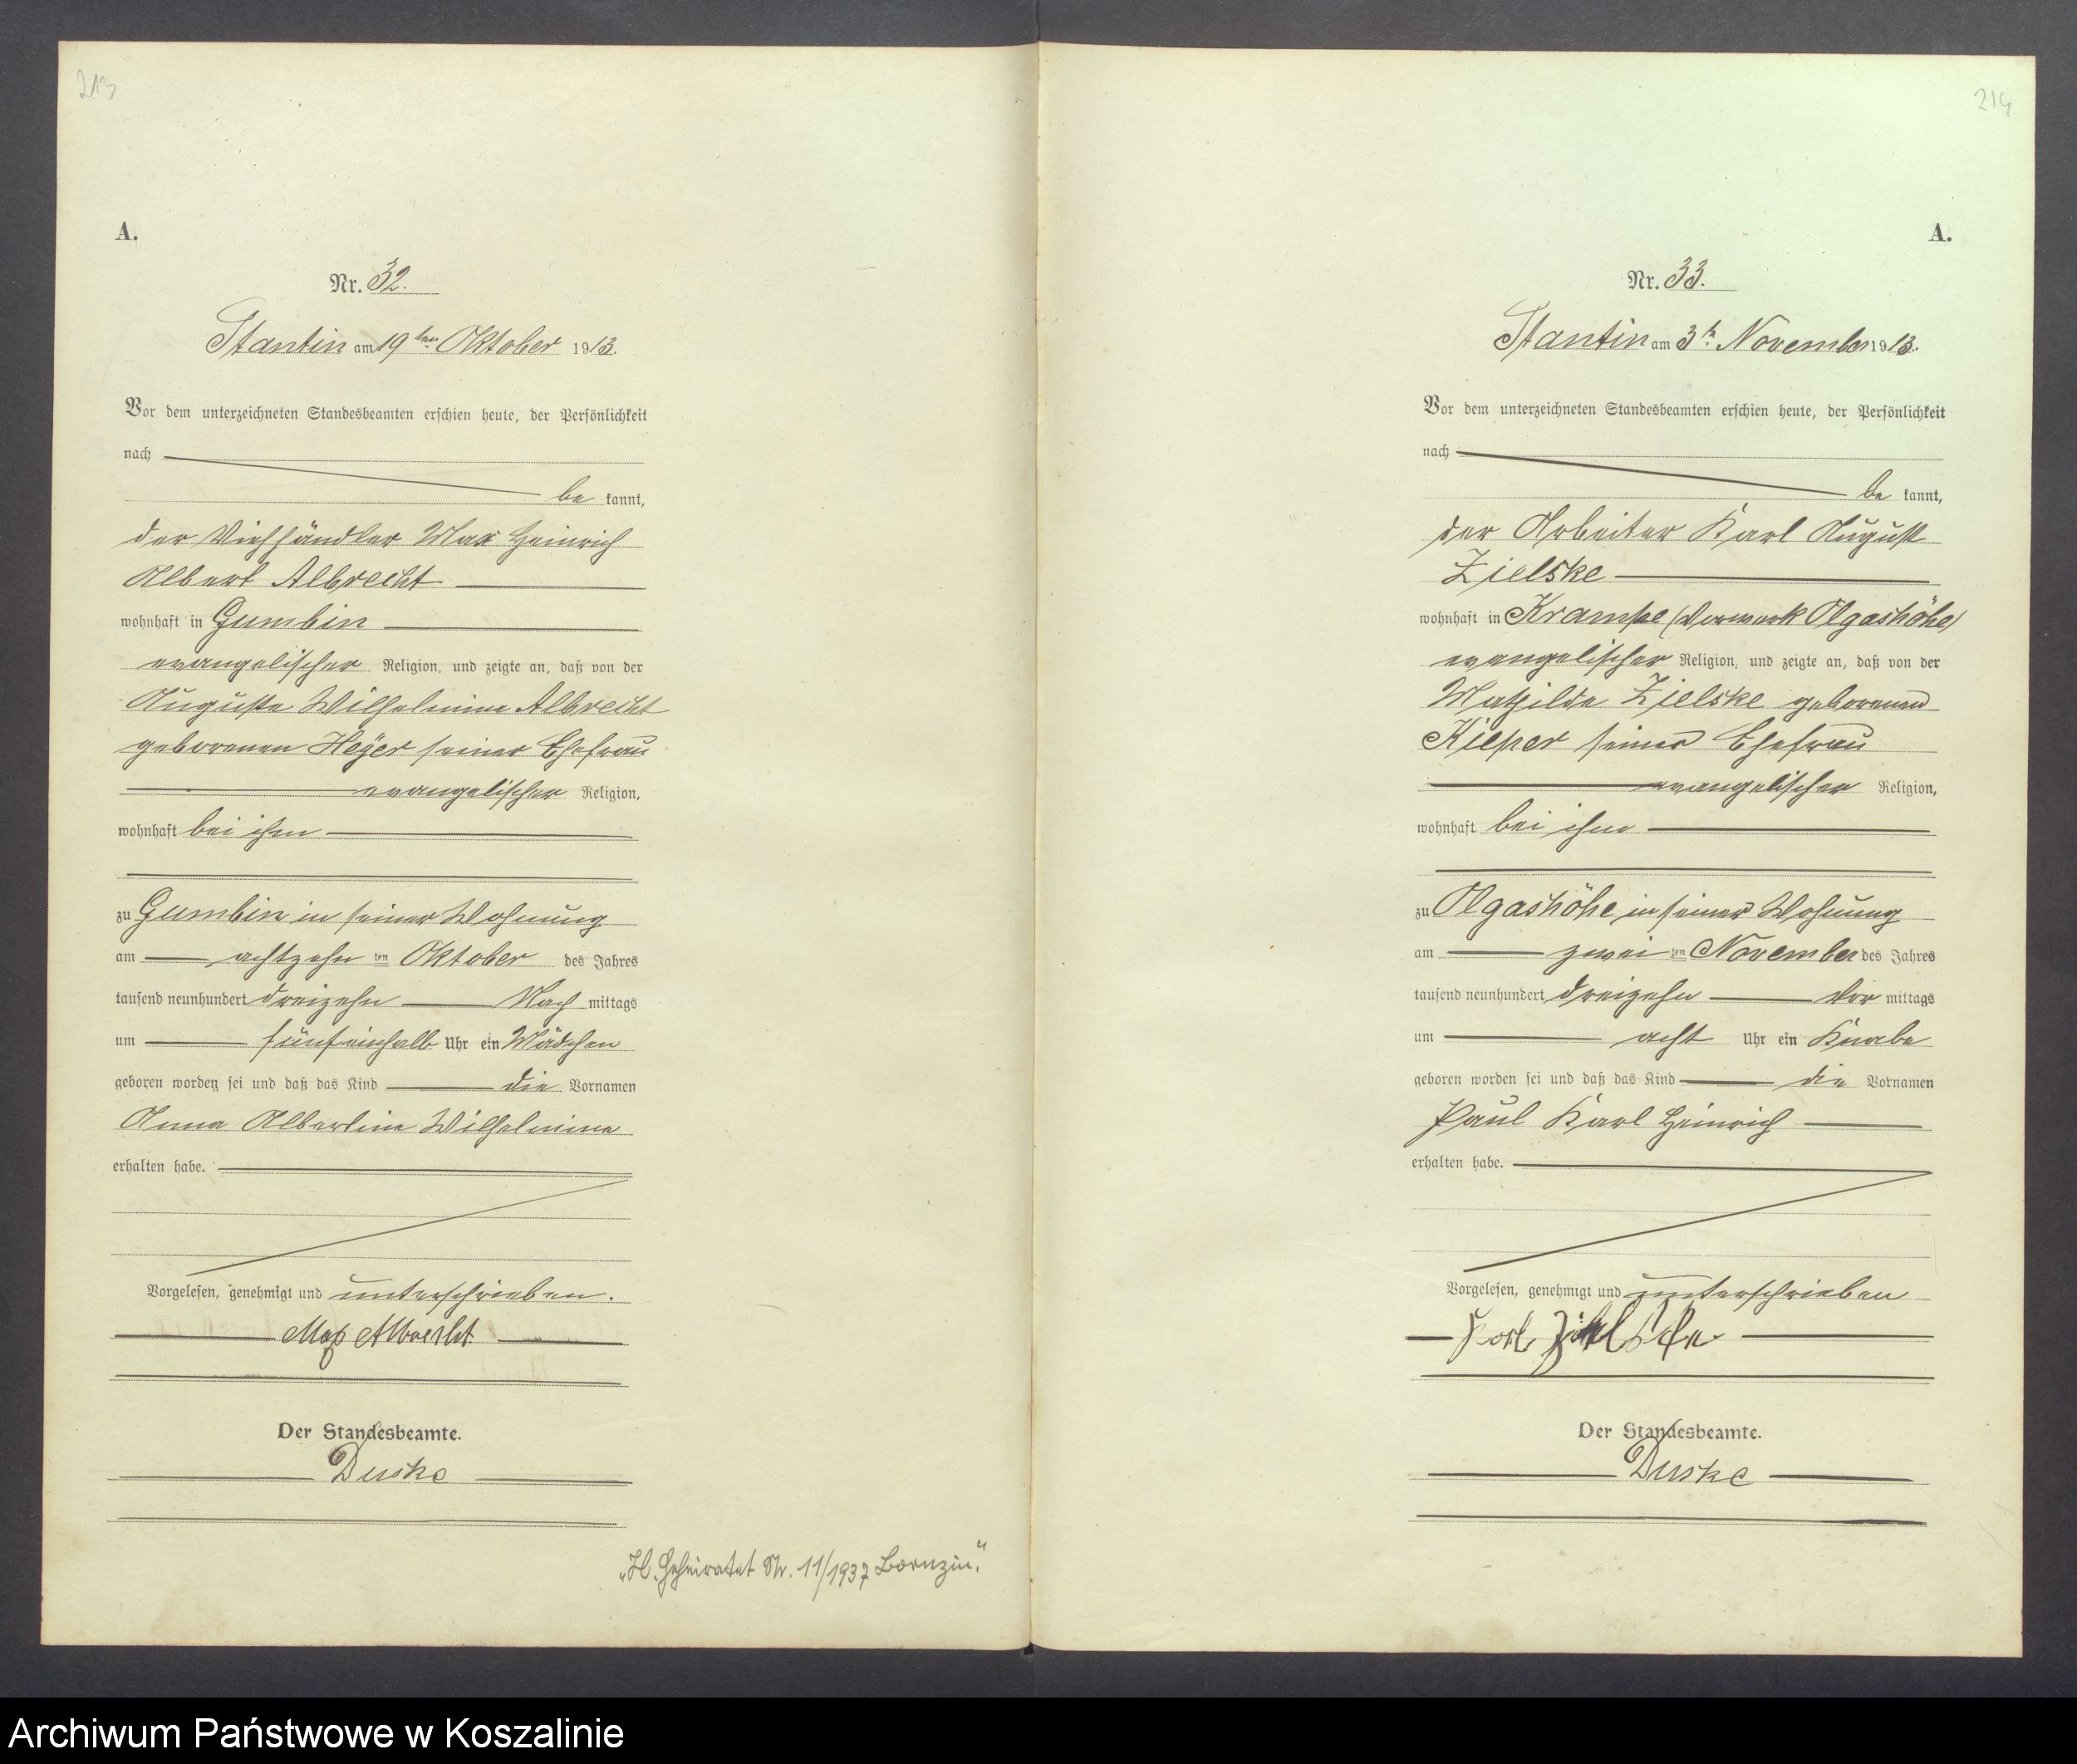 213
A.
Nr. 32.
Stantin am 19ten Oktober 1913.
Vor dem unterzeichneten Standesbeamten erschien heute, der Persönlichkeit
nach
be kannt,
der Viehhändler Max Heinrich
Albert Albrecht
wohnhaft in Gumbin
evangelischer Religion, und zeigte an, daß von der
Auguste Wilhelmine Albrecht
geborenen Heyer seiner Ehefrau
evangelischer Religion,
wohnhaft bei ihm
zu Gumbin in seiner Wohnung
am achtzehn ten Oktober des Jahres
tausend neunhundert dreizehn Nach mittags
um fünfeinhalb Uhr ein Mädchen
geboren worden sei und daß das Kind die Vornamen
Anna Albertine Wilhelmine
erhalten habe.
Vorgelesen, genehmigt und unterschrieben.
Max Albrecht
Der Standesbeamte.
Duske
„H. Geheiratet Nr. 11/1937 Bornzin."
214
A.
Nr. 33.
Stantin am 3t. November 1913.
Vor dem unterzeichneten Standesbeamten erschien heute, der Persönlichkeit
nach
be kannt,
der Arbeiter Karl August
Zielske
wohnhaft in Krampe (Vorwerk Olgashöhe)
evangelischer Religion, und zeigte an, daß von der
Mathilde Zielske geborenen
Kieper seiner Ehefrau
evangelischer Religion,
wohnhaft bei ihm
zu Olgashöhe in seiner Wohnung
am zwei ten November des Jahres
tausend neunhundert dreizehn Vor mittags
um acht Uhr ein Knabe
geboren worden sei und daß das Kind die Vornamen
Paul Karl Heinrich
erhalten habe.
Vorgelesen, genehmigt und unterschrieben
Karl Zielske
Der Standesbeamte.
Duske
Archiwum Państwowe w Koszalinie